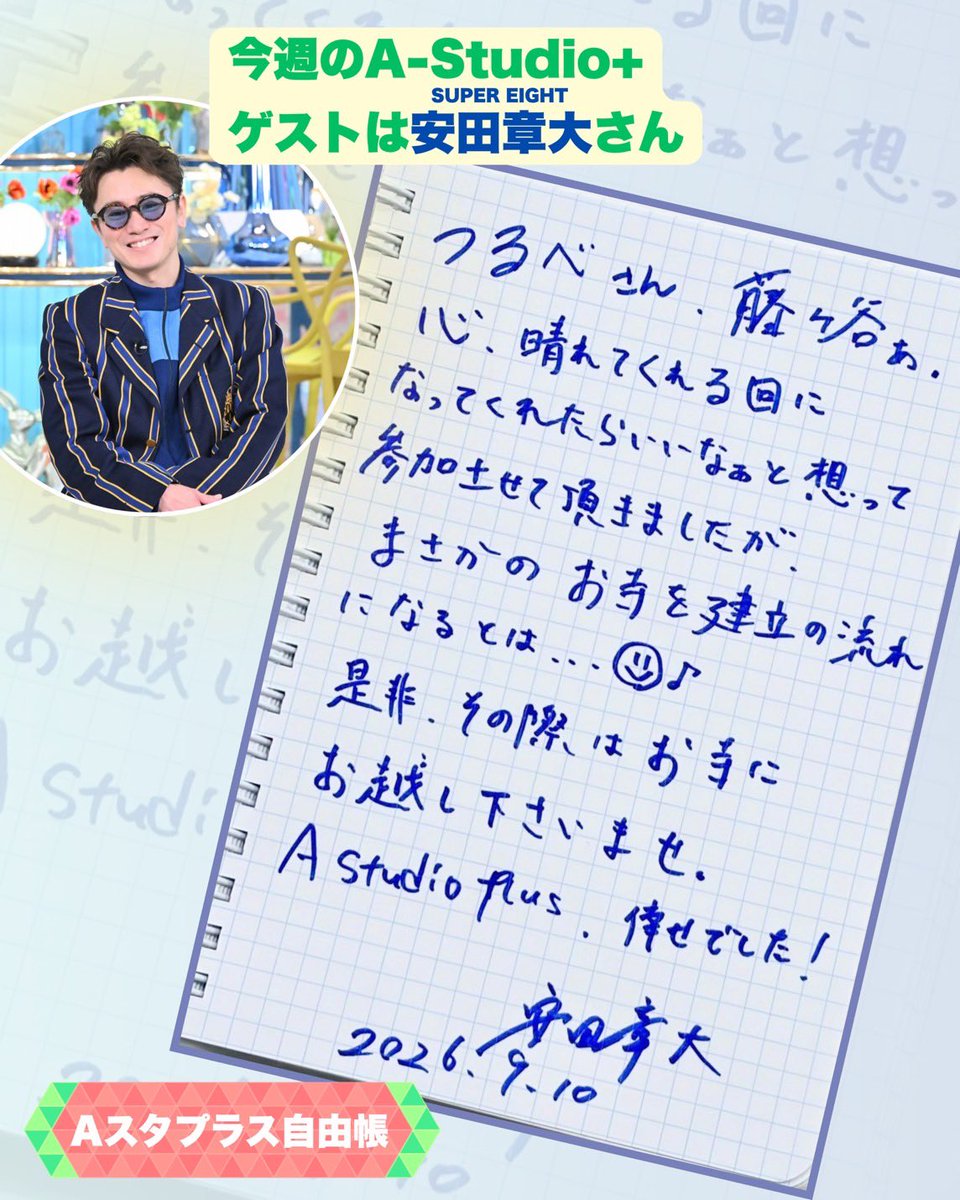 今週のA-Studio+
SUPER EIGHT
ゲストは安田章大さん
つるべさん、藤ヶ谷ぁ.
心、晴れてくれる回に
なってくれたらいいなぁと想って
参加させて頂きましたが、
まさかのお寺を建立の流れ
になるとは...♪
是非、その際はお寺に
お越し下さいませ.
A studio plus、倖せでした!
安田章大
2026.9.10
Aスタプラス自由帳